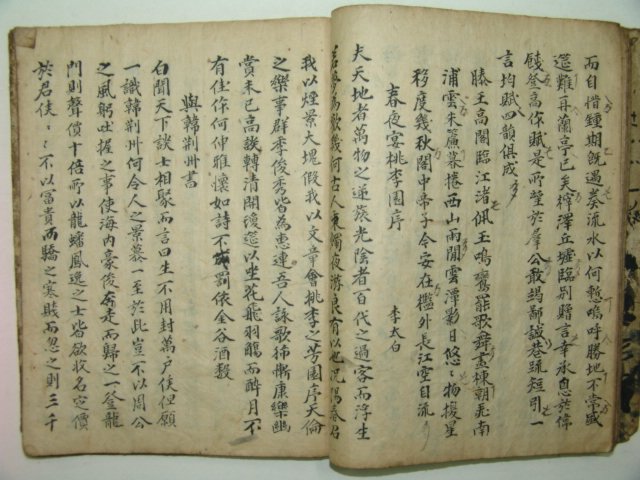 而自惜鍾期旣遇奏流水以何慙嗚呼勝地不常盛
筵難再蘭亭已矣梓澤丘墟臨別贈言幸承恩於偉
餞登高作賦是所望於羣公敢竭鄙誠恭疏短引一
言均賦四韻俱成
滕王高閣臨江渚佩玉鳴鸞罷歌舞畫棟朝飛南
浦雲朱簾暮捲西山雨閒雲潭影日悠〻物換星
移度幾秋閣中帝子今安在檻外長江空自流
春夜宴桃李園序
李太白
夫天地者萬物之逆旅光陰者百代之過客而浮生
若夢爲歡幾何古人秉燭夜遊良有以也況陽春召
我以煙景大塊假我以文章會桃李之芳園序天倫
之樂事群季俊秀皆爲惠連吾人詠歌獨慚康樂幽
賞未已高談轉清開瓊筵以坐花飛羽觴而醉月不
有佳作何伸雅懷如詩不成罰依金谷酒數
與韓荊州書
白聞天下談士相聚而言曰生不用封萬戶侯但願
一識韓荊州何令人之景慕一至於此豈不以周公
之風躬吐握之事使海內豪俊奔走而歸之一登龍
門則聲價十倍所以龍蟠鳳逸之士皆欲收名定價
於君侯〻〻不以富貴而驕之寒賤而忽之則三千